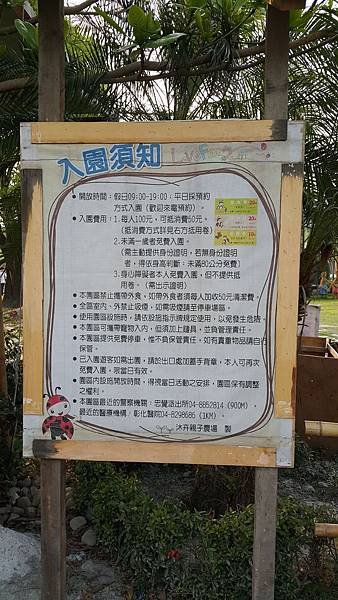 入園須知
開放時間：假日09:00-19:00；平日採預約
方式入園（歡迎來電預約）。
入園費用：1.每人100元，可抵消費50元。
（抵消費方式詳見右方抵用卷）
2.未滿一歲者免費入園。
（需主動提供身份證明，若無身份證明
者，得依身高判斷，未滿80公分免費）
3.身心障礙者本人免費入園，但不提供抵
用卷。（需出示證明）
本園區禁止攜帶外食，如帶外食者須每人加收50元清潔費。
全區室內、外禁止吸煙，如需吸煙請至停車場區。
使用園區設施時，請依設施指示牌規定使用，以免發生危險。
本園區可攜帶寵物入內，但須加上鏈具，並負管理責任。
本園區提供免費停車，惟不負保管責任，如有貴重物品請自行
保管。
已入園遊客如需出園，請於出口處加蓋手背章，本人可再次
免費入園，限當日有效。
園區內設施開放時間，得視當日活動之安排，園區保有調整
之權利。
本園區最近的警察機關：忠覺派出所04-8652814（900M）。
最近的醫療機構：彰化醫院04-8298686（1KM）。
沐卉親子農場 製